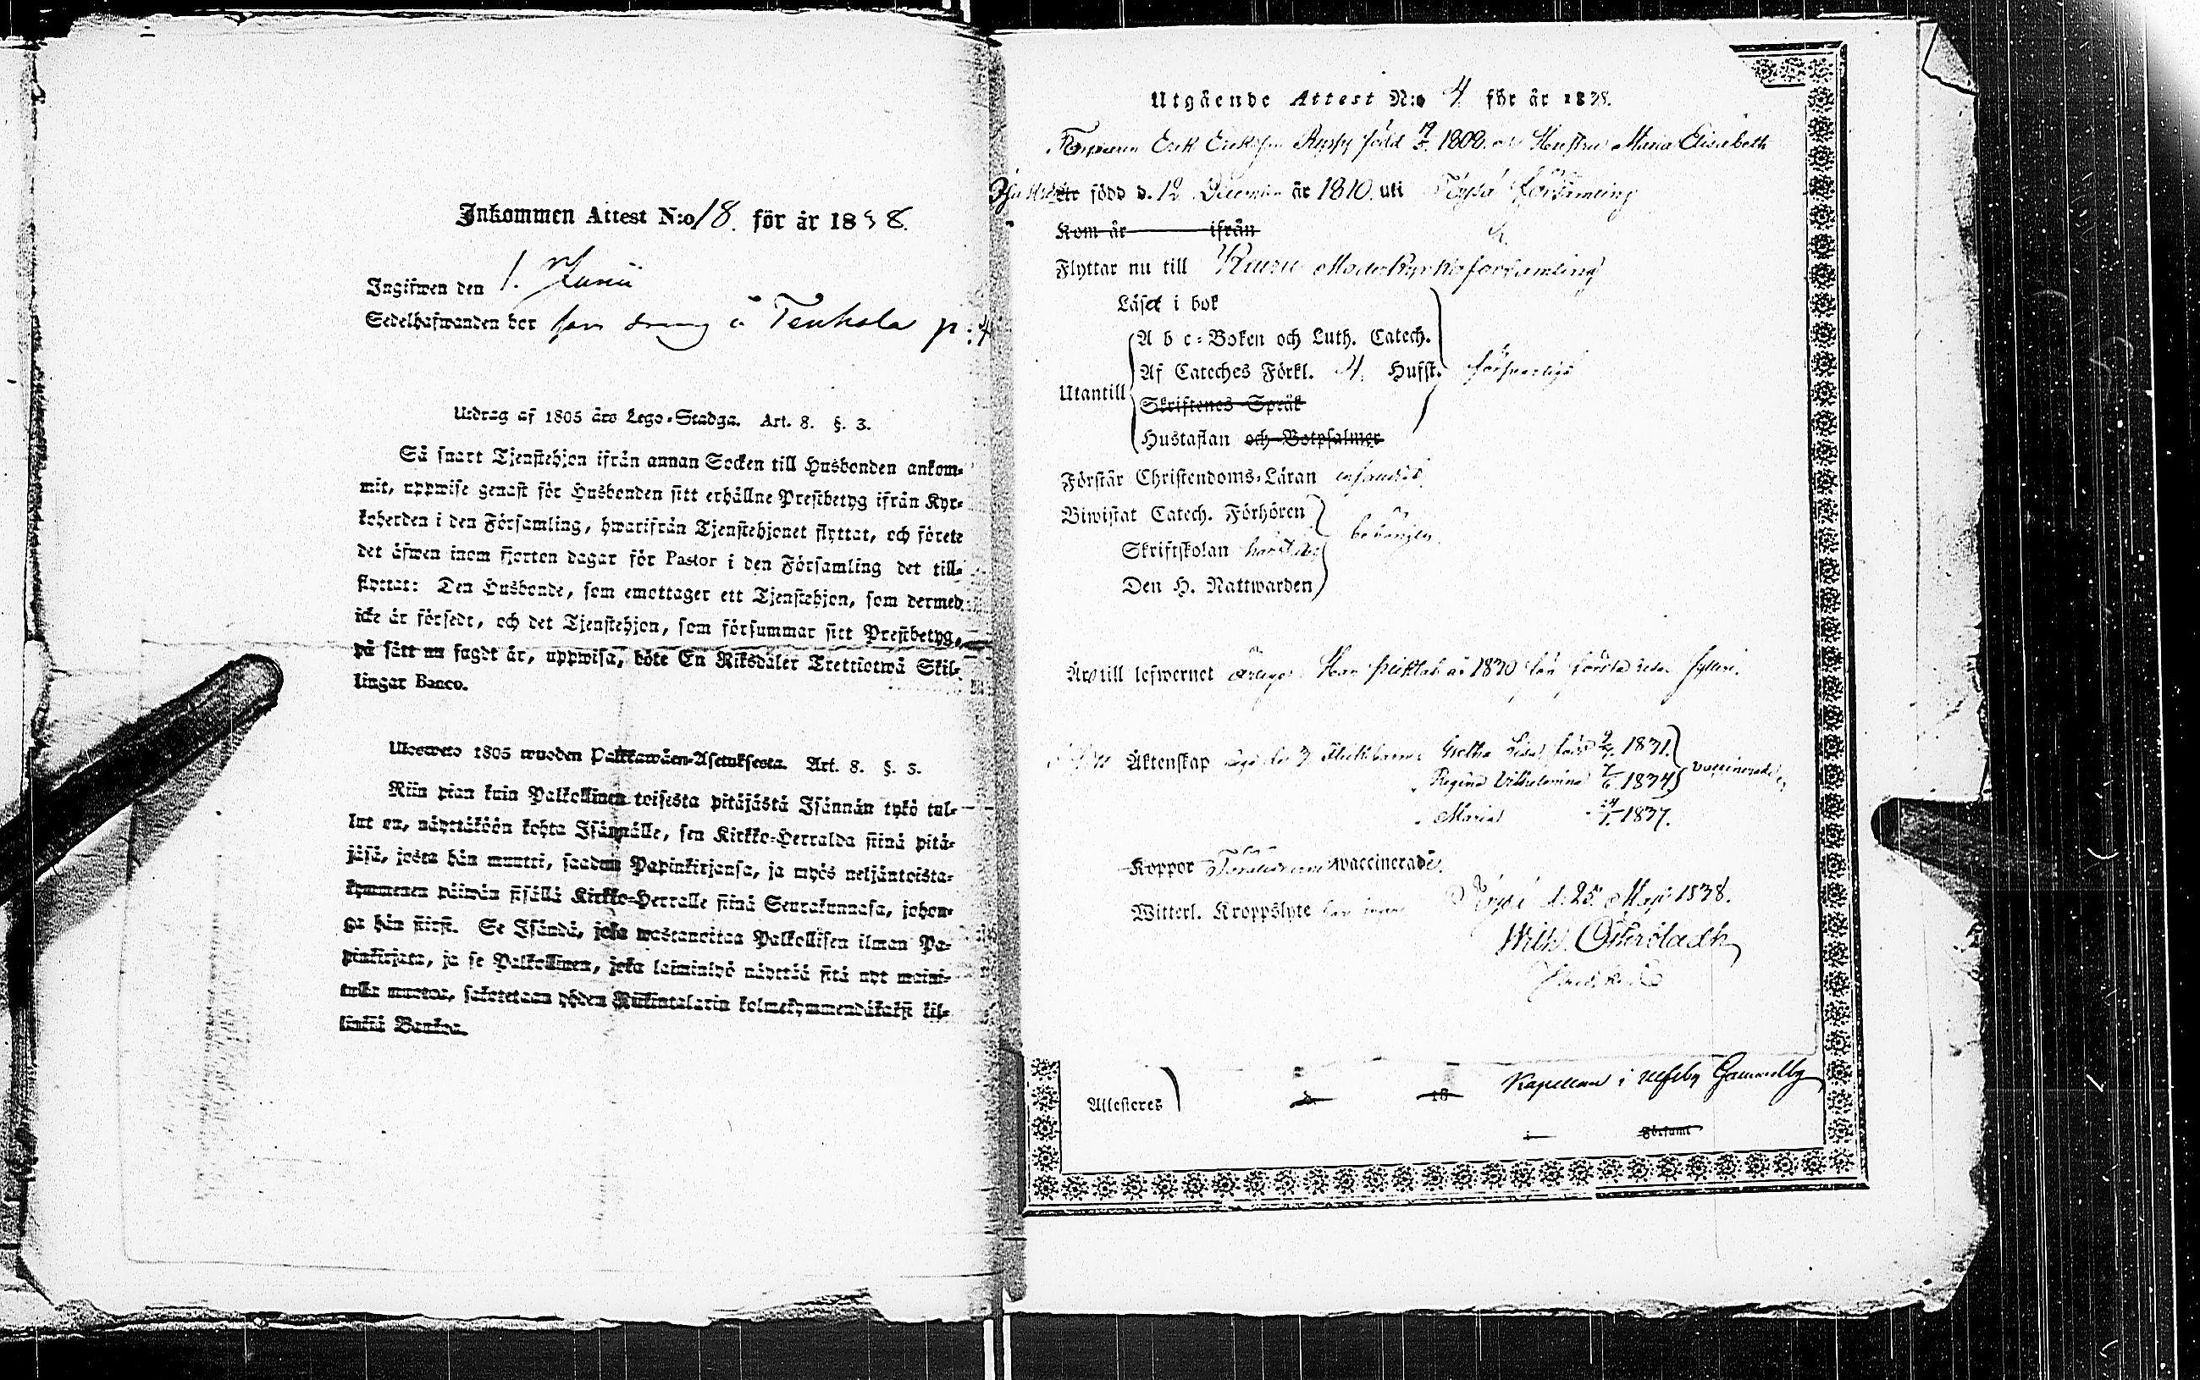 Inkommen Attest N:o 18. för år 1838.
Ingifwen den 1. Junii
Sedelhafwanden bor som dräng å Tenhola p: 4
Utdrag af 1805 års Lego-Stadga. Art. 8. §. 3.
Så snart Tjenstehjon ifrån annan Socken till Husbonden ankom-
mit, uppwise genast för Husbonden sitt erhållne Prestbetyg ifrån Kyr-
koherden i den Församling, hwarifrån Tjenstehjonet flyttat, och förete
det äfwen inom fjorton dagar för Pastor i den Församling det till-
flyttat: Den Husbonde, som emottager ett Tjenstehjon, som dermed
icke är försedt, och det Tjenstehjon, som försummar sitt Prestbetyg,
på sätt nu sagdt är, uppwisa, böte En Riksdaler Trettiotwå Skil-
lingar Banco.
Ulosweto 1805 wuoden Palkkawäen-Asetuksesta. Art. 8. §. 3.
Niin pian kuin Palkollinen toisesta pitäjästä Isännän tykö tul-
lut on, näyttäköön kohta Isännälle, sen Kirkko-Herralda siinä pitä-
jäsä, josta hän muutti, saadun Papinkirjansa, ja myös neljäntoista-
kymmenen päiwän sisällä Kirkko-Herralle siinä Seurakunnasa, johon-
ga hän siirsi. Se Isändä, joka wastanottaa Palkollisen ilman Pa-
pinkirjata, ja se Palkollinen, joka laiminlyö näyttää sitä nyt maini-
tulla muotoa, sakotetaan yhden Riikintalarin kolmekymmendäkaksi kil-
linkiä Bankoa.
Utgående Attest N:o 4 för år 1838.
Erik Eriksson född 1808. och Hustru Maria Elisabeth
född d. 12 December år 1810. uti församling
Kom år ifrån
Flyttar nu till Moderkyrkoförsamling
Läser i bok
A b c-Boken och Luth. Catech.
Utantill Af Cateches Förkl. 4. Hufst. försvarligt
Skriftenes Språk
Hustaflan och Botpsalmer
Förstår Christendoms-Läran
Biwistat Catech. Förhören
Skriftskolan behörigen
Den H. Nattwarden
Är till lefwernet Han 1830 för första resan fylleri.
Äktenskap 3 Gretha Lisa född 1831.
Regina Vilhelmina 1834 vaccinerade
Maria 1837.
Koppor vaccinerade.
Witterl. Kroppslyte har ingen d. 25. Maji 1838.
Wilh. Österbladh
Attesteres d. 18 Kapellan i Gammelby
i Församl